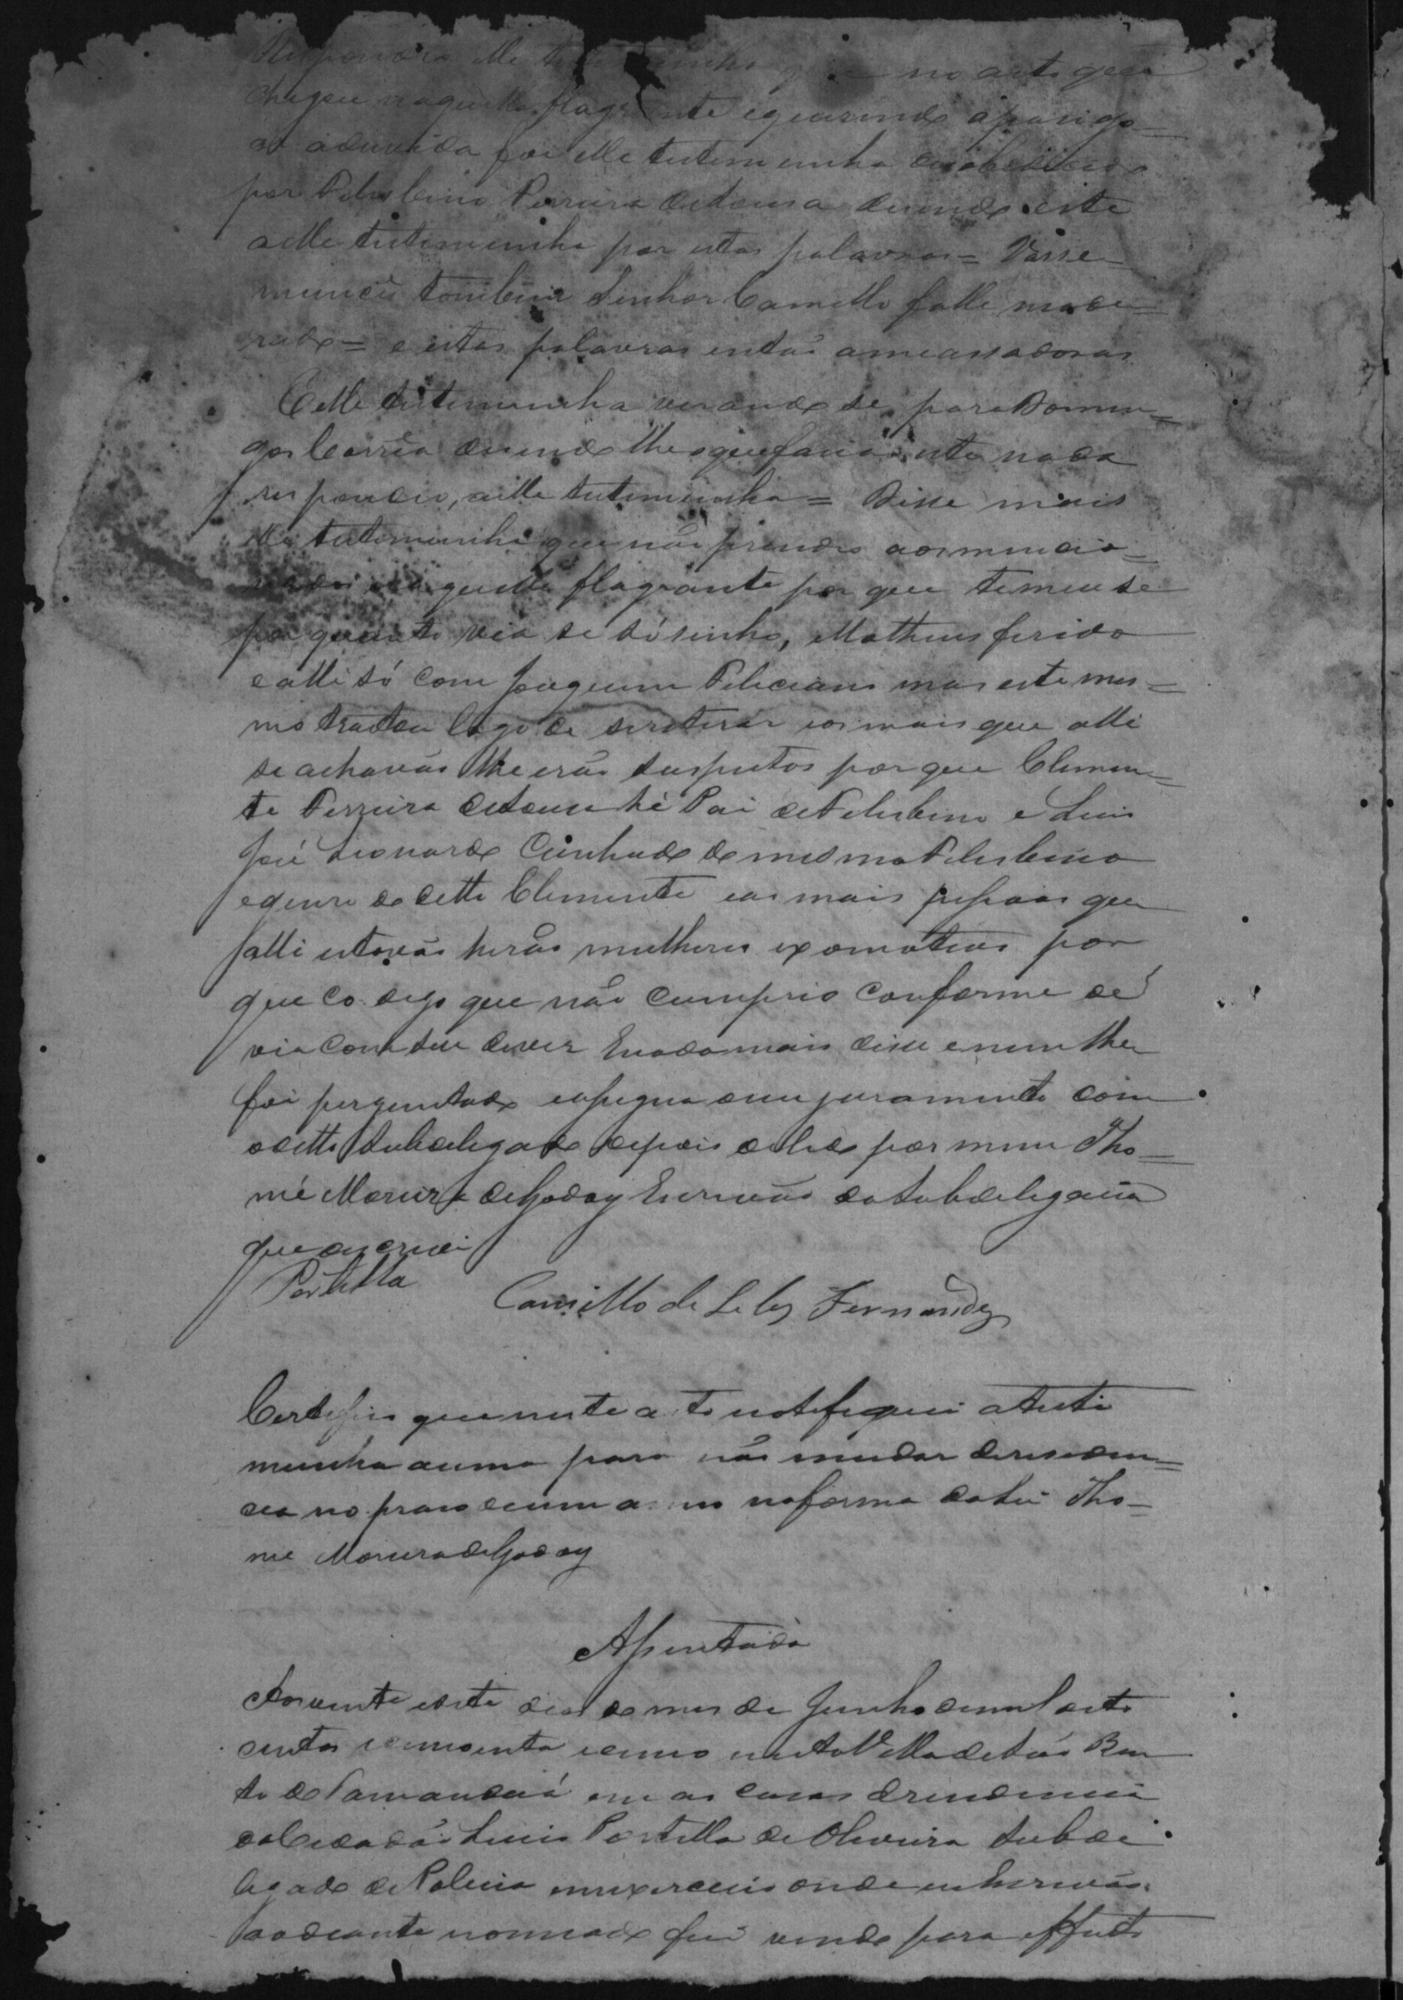 Respondeo elle testemunha que no acto que
chegou naquelle flagrante e querendo apasigo=
a duvida foi elle testemunha desobedecido
por Felesbino Perreira de Sousa disendo este
a elle testemunha por estas palavras = Vosse=
mincê tombem Senhor Camillo falle mode=
rado = e estas palavras entás ameassadoras
E elle testemunha verando se para Domin=
gos Corrêa disendo lhe o que facia este nada
respondeo, a elle testemunha = Disse mais
elle testemunha que não prendeo aos mencio=
nados naquelle flagrante por que temeu se
por quanto via se sósinho, Matheus ferido
e alli só com Joaquim Feleciano mas este mes=
mo tratou logo de se retirar e os mais que alli
se achavás lhe erás suspeitos por que Clemen=
te Perreira de Sousa hé Pai de Felesbino e Luis
José Leonardo Cunhado do mesmo Felesbino
e genro do ditto Clemente e as mais pessoas que
alli estavás herás mulheres e por
que digo que não cumprio conforme de
via com seu dever E nada mais disse e nem lhe
foi perguntado e assigna seu juramento com
o ditto Subdelegado depois de lido por mim Tho=
mé Moreira de Godoy Escrivão da Subdelegacia
que escrevi
Portella Camillo de Lelez Fernandez
Certefico que neste acto notefiquei a teste
munha acima para não mudar de residen=
cia no praso de um anno na forma da Lei Tho=
mé Moreira de Godoy
Assentada
Aos vinte e sete dias do mes de Junho de mil oito
centos e cincoenta e cinco nesta Villa de Sáo Ben
to de Tamanduá em as casas de residencia
do Cidadáo Luis Portella de Oliveira Subde
legado de Policia em exercicio onde eu Escrivão
ao deante nomeado fui vindo para effeito